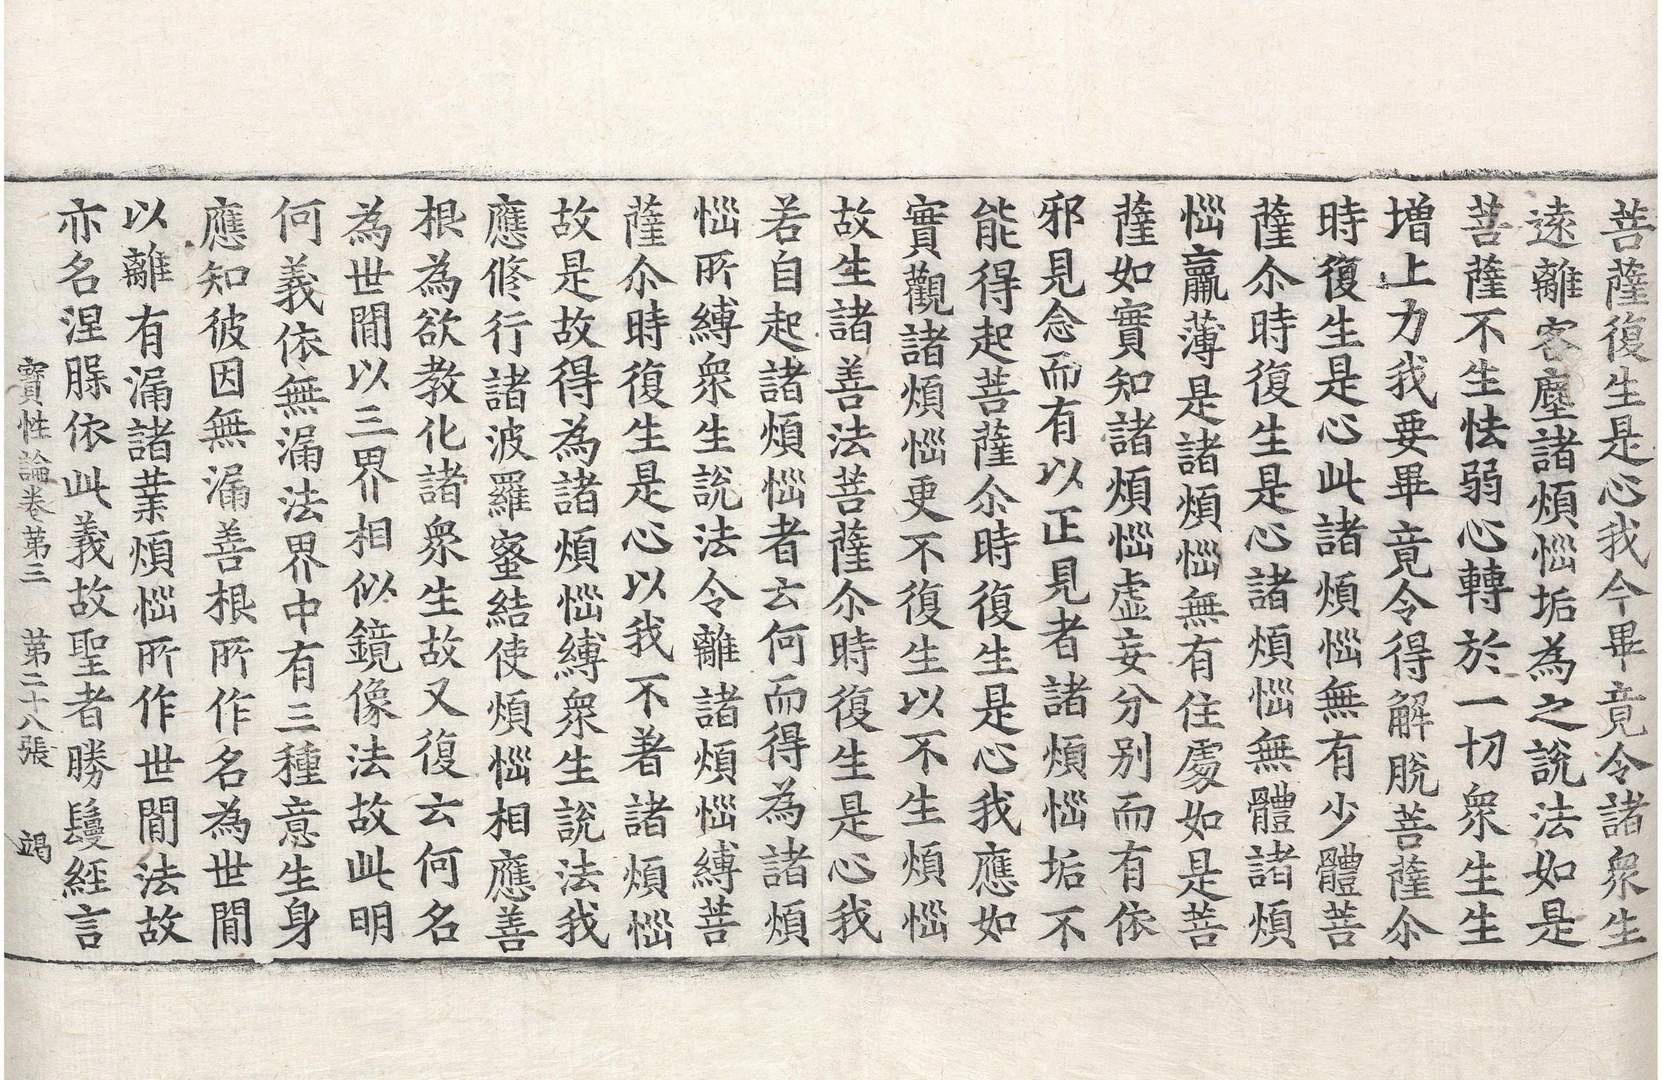 菩薩復生是心我今畢竟令諸衆生
遠離客塵諸煩惱垢為之說法如是
菩薩不生怯弱心轉於一切衆生生
増上力我要畢竟令得解脫菩薩尒
時復生是心此諸煩惱無有少體菩
薩尒時復生是心諸煩惱無體諸煩
惱羸薄是諸煩惱無有住處如是菩
薩如實知諸煩惱虛妄分別而有依
邪見念而有以正見者諸煩惱垢不
能得起菩薩尒時復生是心我應如
實觀諸煩惱更不復生以不生煩惱
故生諸善法菩薩尒時復生是心我
若自起諸煩惱者云何而得為諸煩
惱所縛衆生說法令離諸煩惱縛菩
薩尒時復生是心以我不著諸煩惱
故是故得為諸煩惱縛衆生說法我
應修行諸波羅蜜結使煩惱相應善
根為欲教化諸衆生故又復云何名
為世閒以三界相似鏡像法故此明
何義依無漏法界中有三種意生身
應知彼因無漏善根所作名為世閒
以離有漏諸業煩惱所作世閒法故
亦名涅槃依此義故聖者勝鬘經言
寶性論卷第三　第二十八張　竭